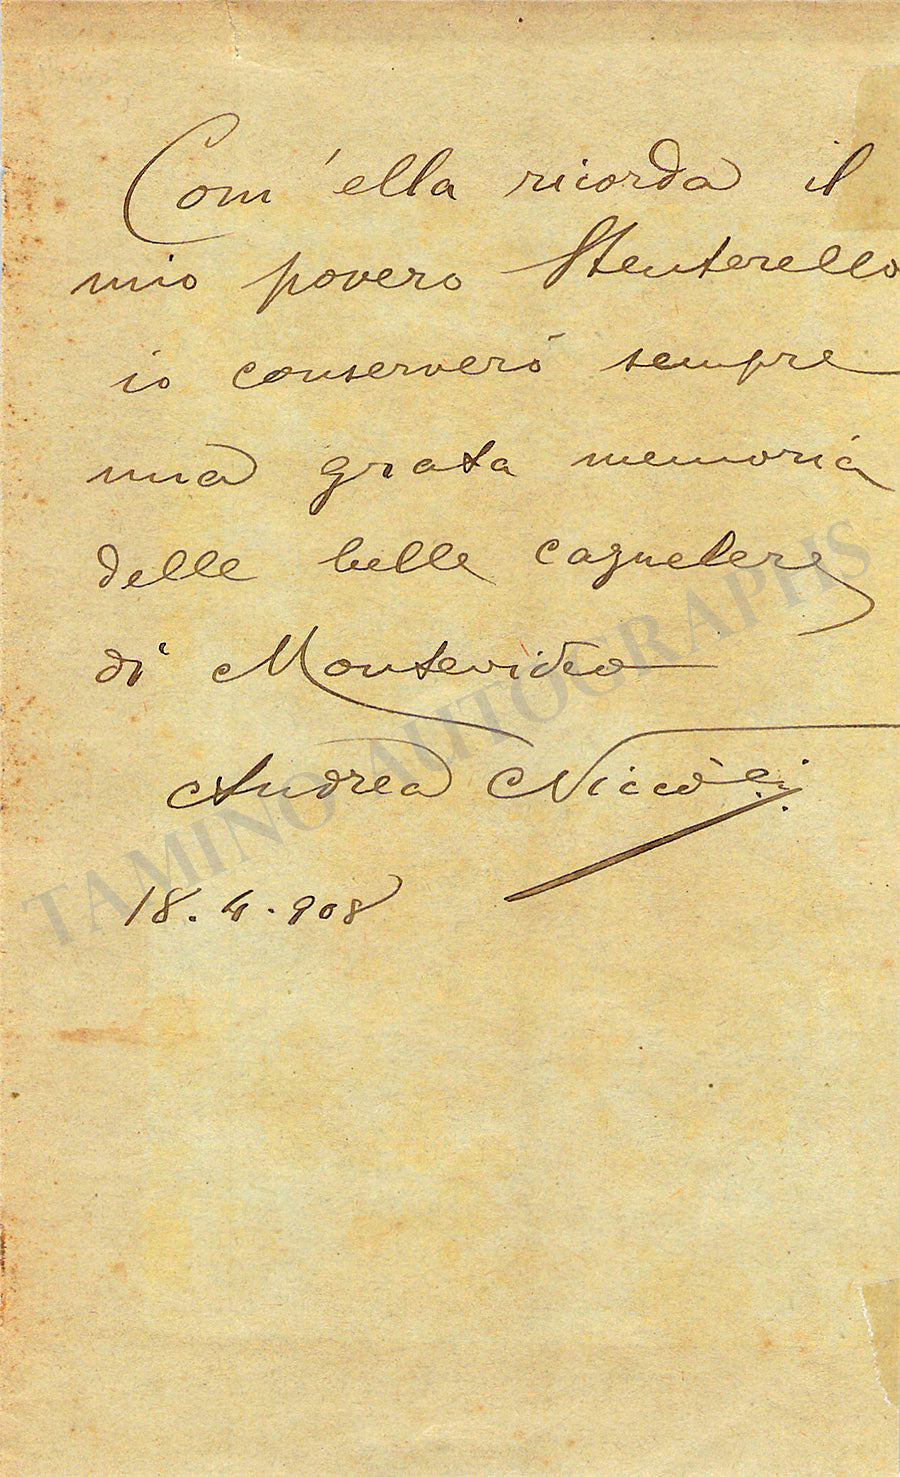 Com'ella ricorda il
mio povero Stenterello
io conserverò sempre
una grata memoria
delle belle
di Montevideo
Andrea Niccòli
18.4.908
TAMINO AUTOGRAPHS